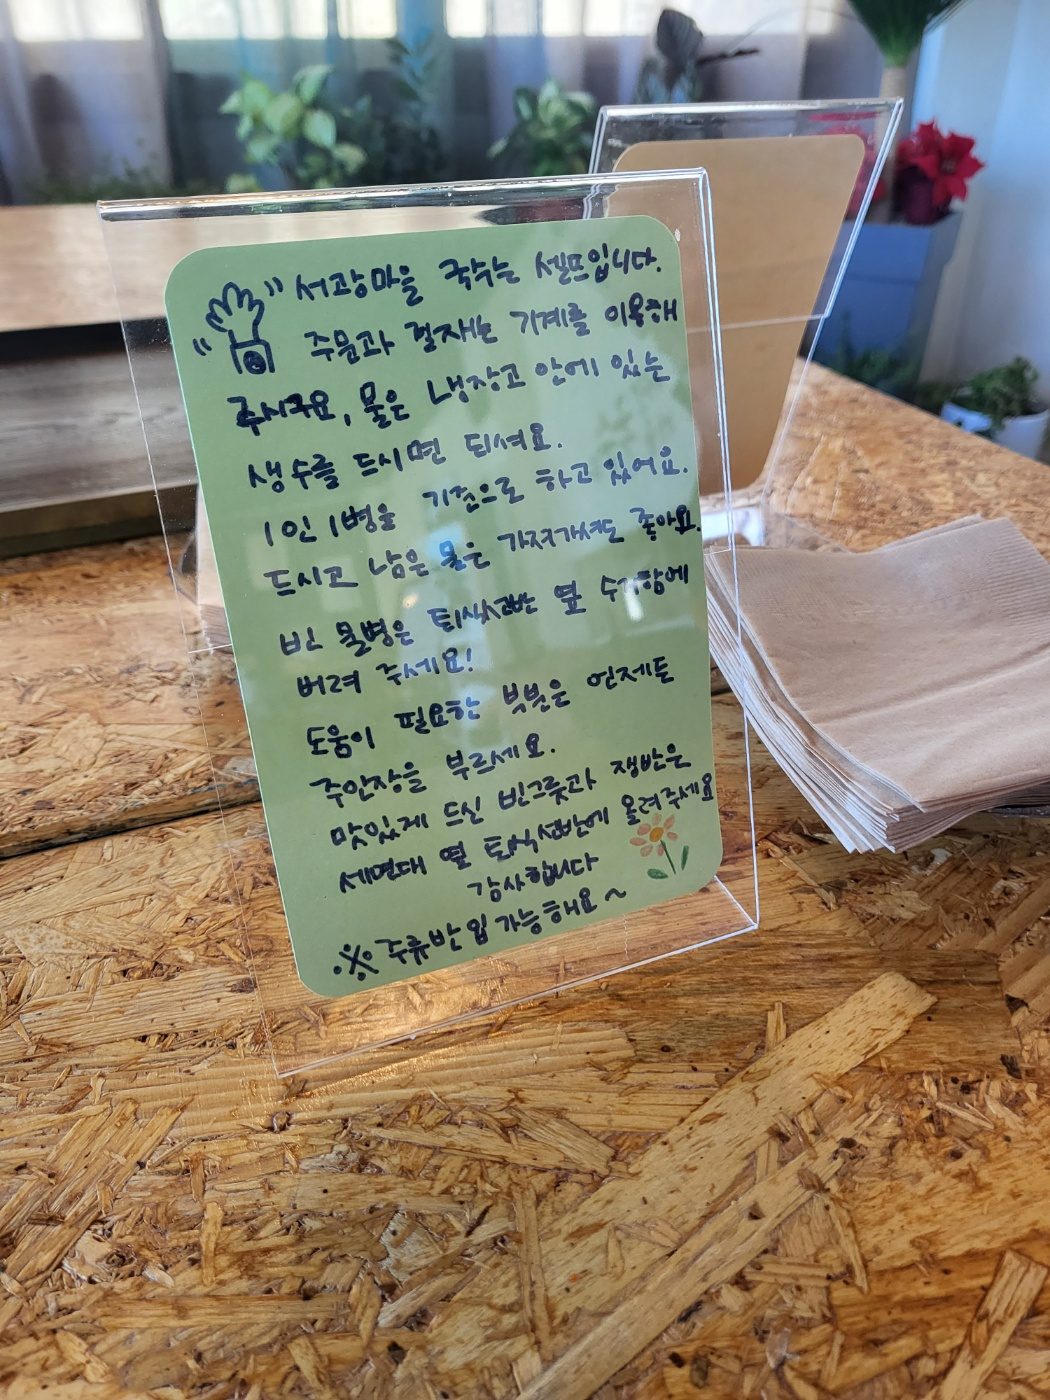 서광마을 국수는 셀프입니다.
주문과 결재는 기계를 이용해
주시구요, 물은 냉장고 안에 있는
생수를 드시면 되셔요.
1인 1병을 기준으로 하고 있어요.
드시고 남은 물은 가져가셔도 좋아요.
빈 물병은 퇴식선반 옆 수거함에
버려 주세요!
도움이 필요한 부분은 언제든
주인장을 부르세요.
맛있게 드신 빈그릇과 쟁반은
세면대 옆 퇴식선반에 올려주세요
감사합니다
※ 주류반입 가능해요~